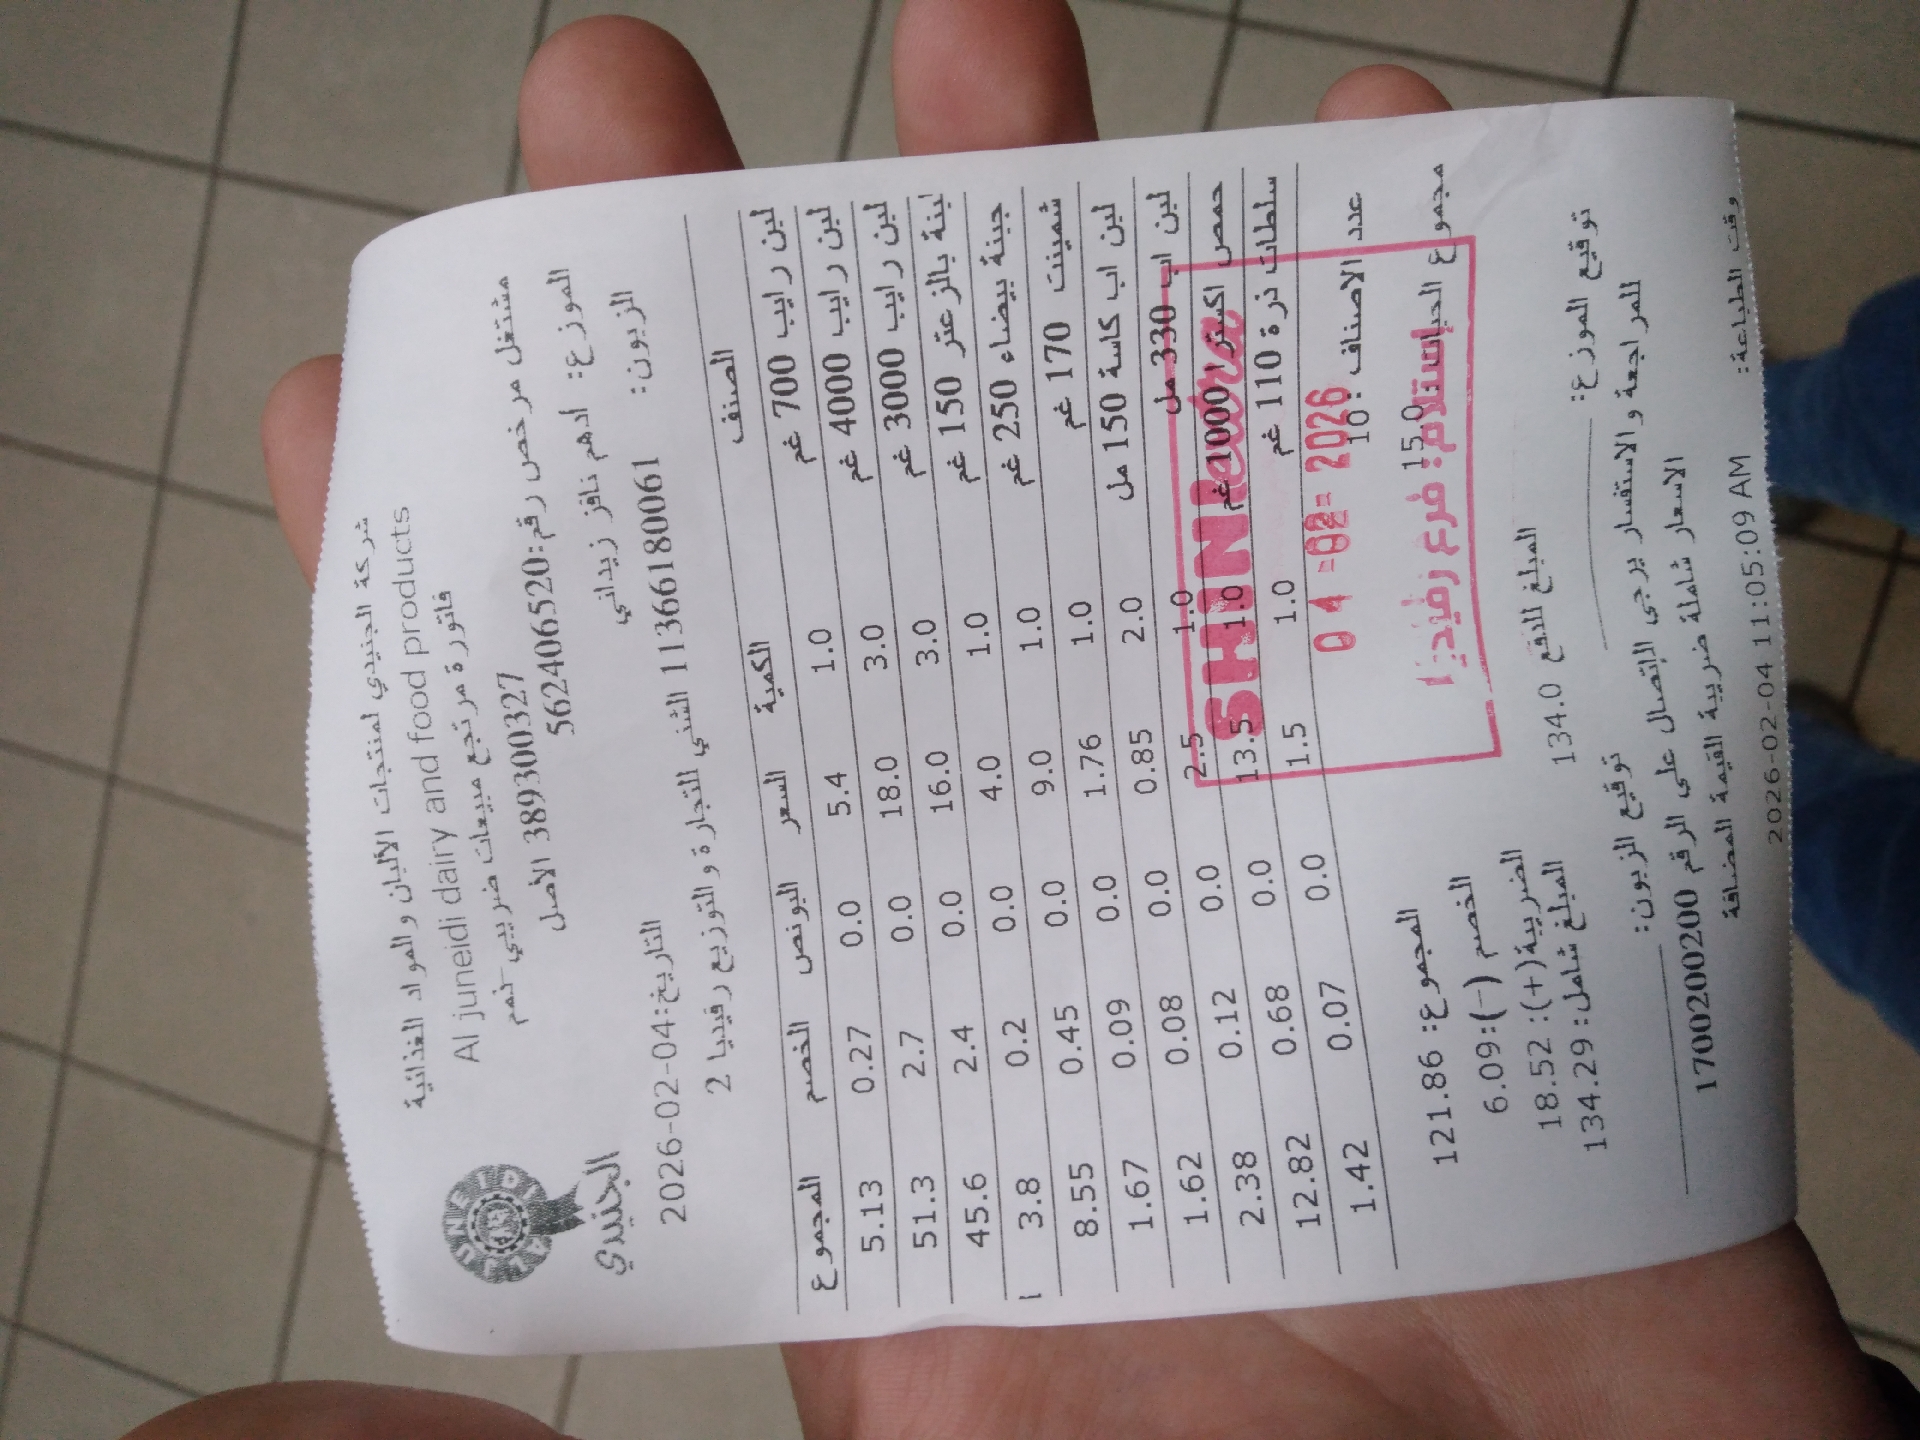 شركة الجنيدي لمنتجات الألبان والمواد الغذائية
Al juneidi dairy and food products
فاتورة مرتجع مبيعات ضريبي-ذمم
389300327 الأصل
مشتغل مرخص رقم:562406520
AL JUNEIDI
الجنيدي
الموزع: ادهم نافز زيداني
الزبون: 11366180061 الشني للتجارة والتوزيع رفيديا 2
التاريخ:2026-02-04
الصنف الكمية السعر البونص الخصم المجموع
لبن رايب 700 غم 1.0 5.4 0.0 0.27 5.13
لبن رايب 4000 غم 3.0 18.0 0.0 2.7 51.3
لبن رايب 3000 غم 3.0 16.0 0.0 2.4 45.6
لبنة بالزعتر 150 غم 1.0 4.0 0.0 0.2 3.8
جبنة بيضاء 250 غم 1.0 9.0 0.0 0.45 8.55
شمينت 170 غم 1.0 1.76 0.0 0.09 1.67
لبن اب كاسة 150 مل 2.0 0.85 0.0 0.08 1.62
لبن اب 330 مل 1.0 2.5 0.0 0.12 2.38
حمص اكسترا 1000 غم 1.0 13.5 0.0 0.68 12.82
سلطات ذرة 110 غم 1.0 1.5 0.0 0.07 1.42
SHINI extra
04 -02- 2026
استلام: فرع رفيديا
عدد الاصناف : 10
المجموع: 121.86
مجموع الحبات: 15.0
الخصم (-): 6.09
الضريبة(+): 18.52
المبلغ شامل: 134.29
المبلغ للدفع 134.0
توقيع الموزع:
توقيع الزبون:
للمراجعة والاستفسار يرجى الإتصال على الرقم 1700200200
الاسعار شاملة ضريبة القيمة المضافة
وقت الطباعة: 2026-02-04 11:05:09 AM